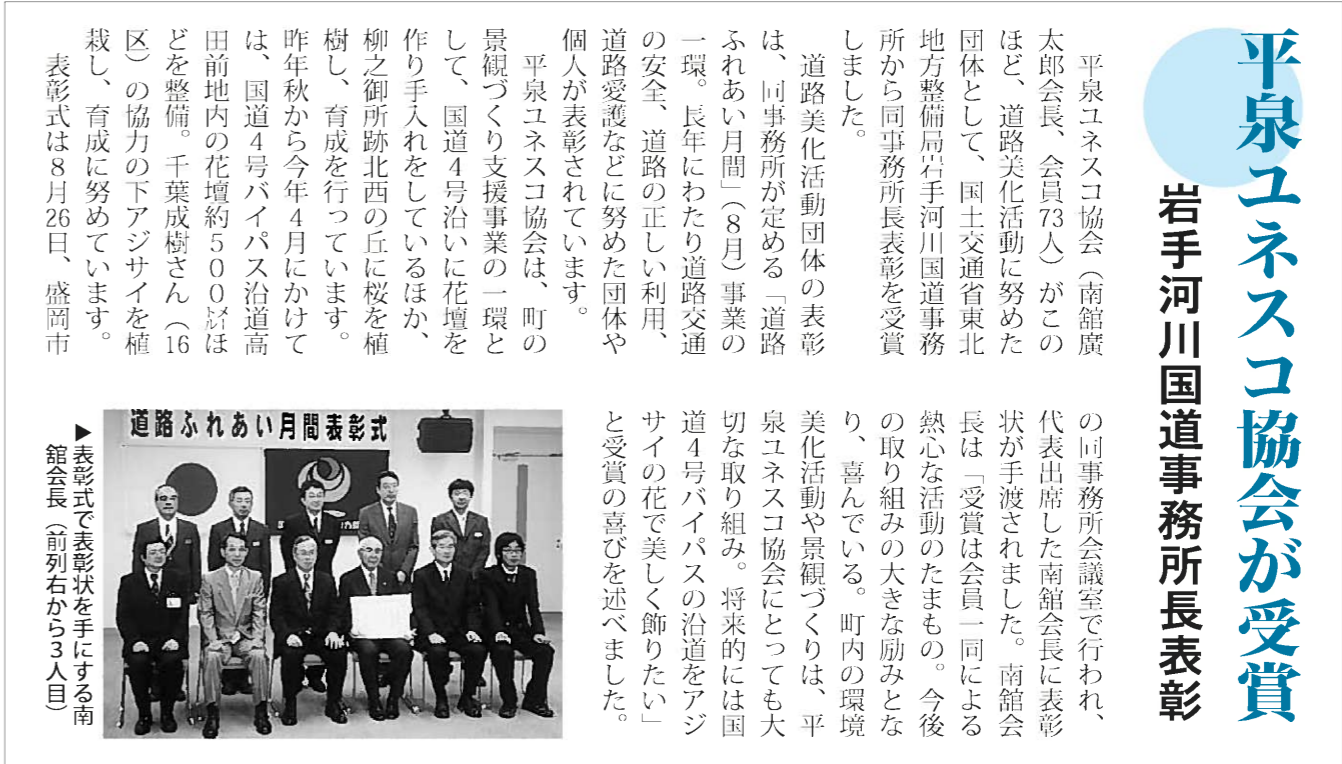 平泉ユネスコ協会が受賞
岩手河川国道事務所長表彰
平泉ユネスコ協会（南舘廣
太郎会長、会員73人）がこの
ほど、道路美化活動に努めた
団体として、国土交通省東北
地方整備局岩手河川国道事務
所から同事務所長表彰を受賞
しました。
道路美化活動団体の表彰
は、同事務所が定める「道路
ふれあい月間」（８月）事業の
一環。長年にわたり道路交通
の安全、道路の正しい利用、
道路愛護などに努めた団体や
個人が表彰されています。
平泉ユネスコ協会は、町の
景観づくり支援事業の一環と
して、国道４号沿いに花壇を
作り手入れをしているほか、
柳之御所跡北西の丘に桜を植
樹し、育成を行っています。
昨年秋から今年４月にかけて
は、国道４号バイパス沿道高
田前地内の花壇約５００㍍ほ
どを整備。千葉成樹さん（16
区）の協力の下アジサイを植
栽し、育成に努めています。
表彰式は８月26日、盛岡市
の同事務所会議室で行われ、
代表出席した南舘会長に表彰
状が手渡されました。南舘会
長は「受賞は会員一同による
熱心な活動のたまもの。今後
の取り組みの大きな励みとな
り、喜んでいる。町内の環境
美化活動や景観づくりは、平
泉ユネスコ協会にとっても大
切な取り組み。将来的には国
道４号バイパスの沿道をアジ
サイの花で美しく飾りたい」
と受賞の喜びを述べました。
道路ふれあい月間表彰式
▶表彰式で表彰状を手にする南
舘会長（前列右から３人目）